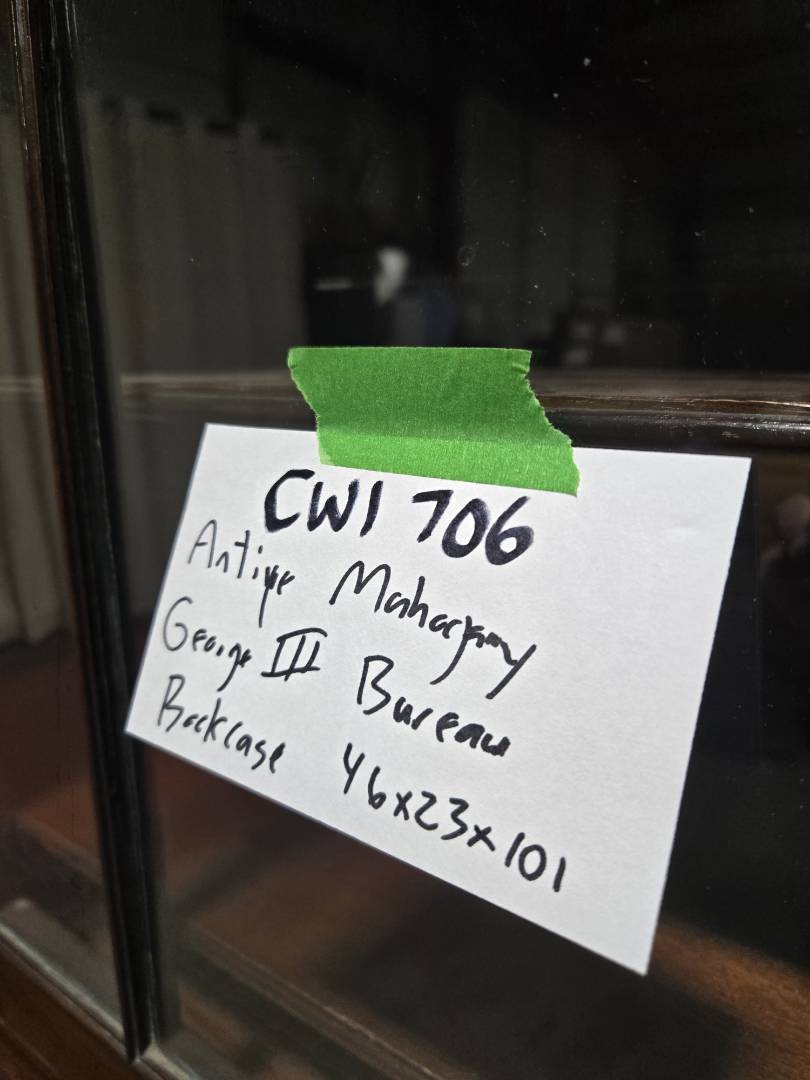 CWI 706
Antique Mahogany
George III Bureau
Bookcase 46x23x101